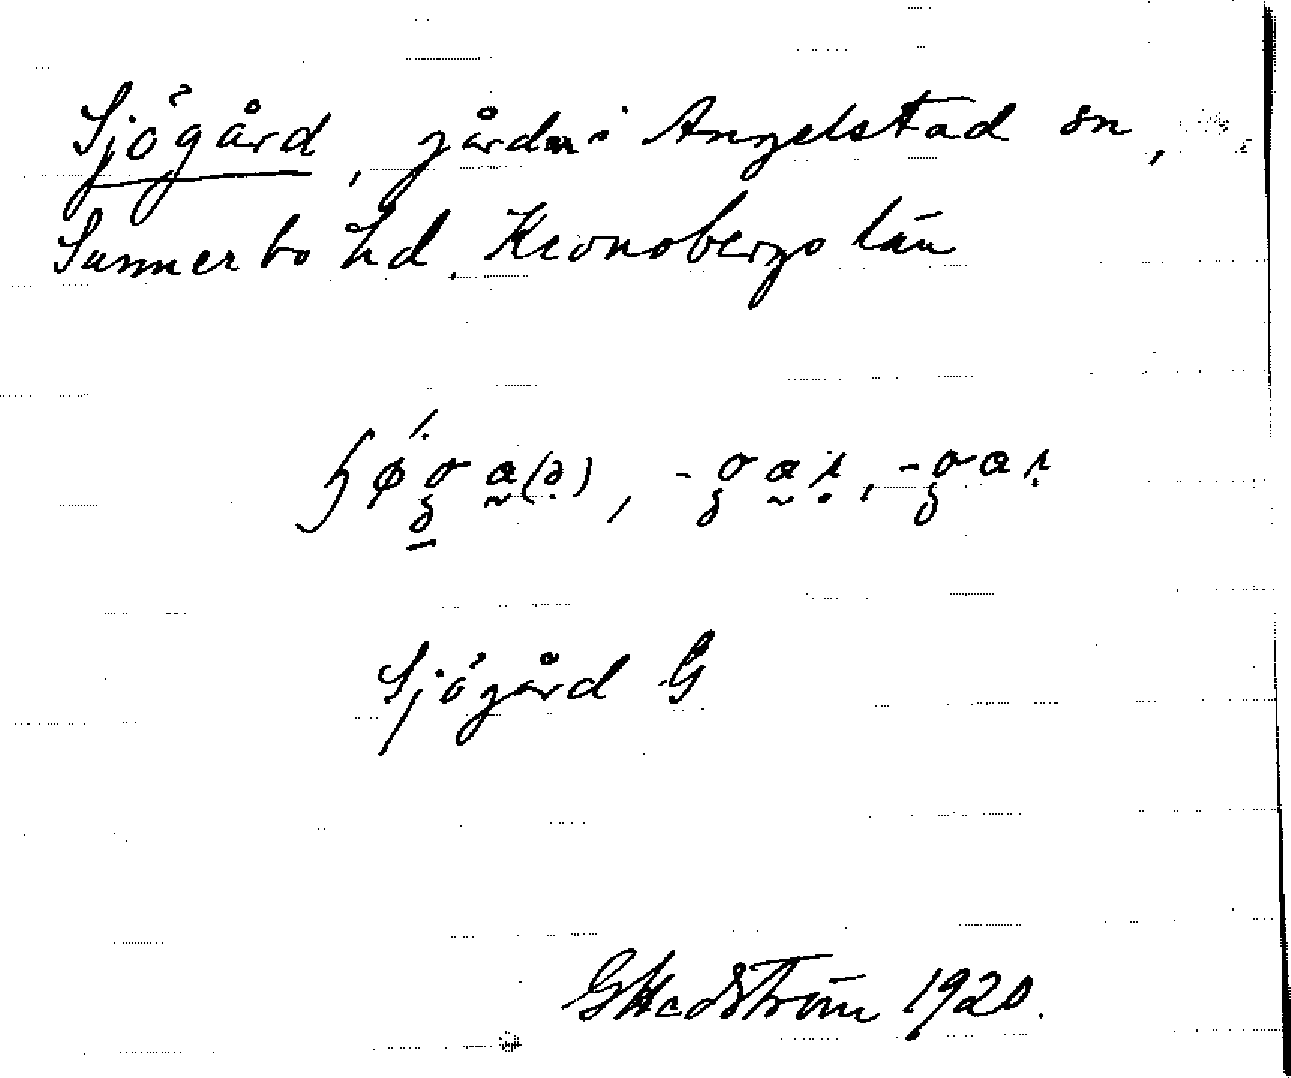 Sjögård, gård n i Angelstad sn,
Sunnerbo hd. Kronobergs län
Sjögård G
G Hedström 1920.